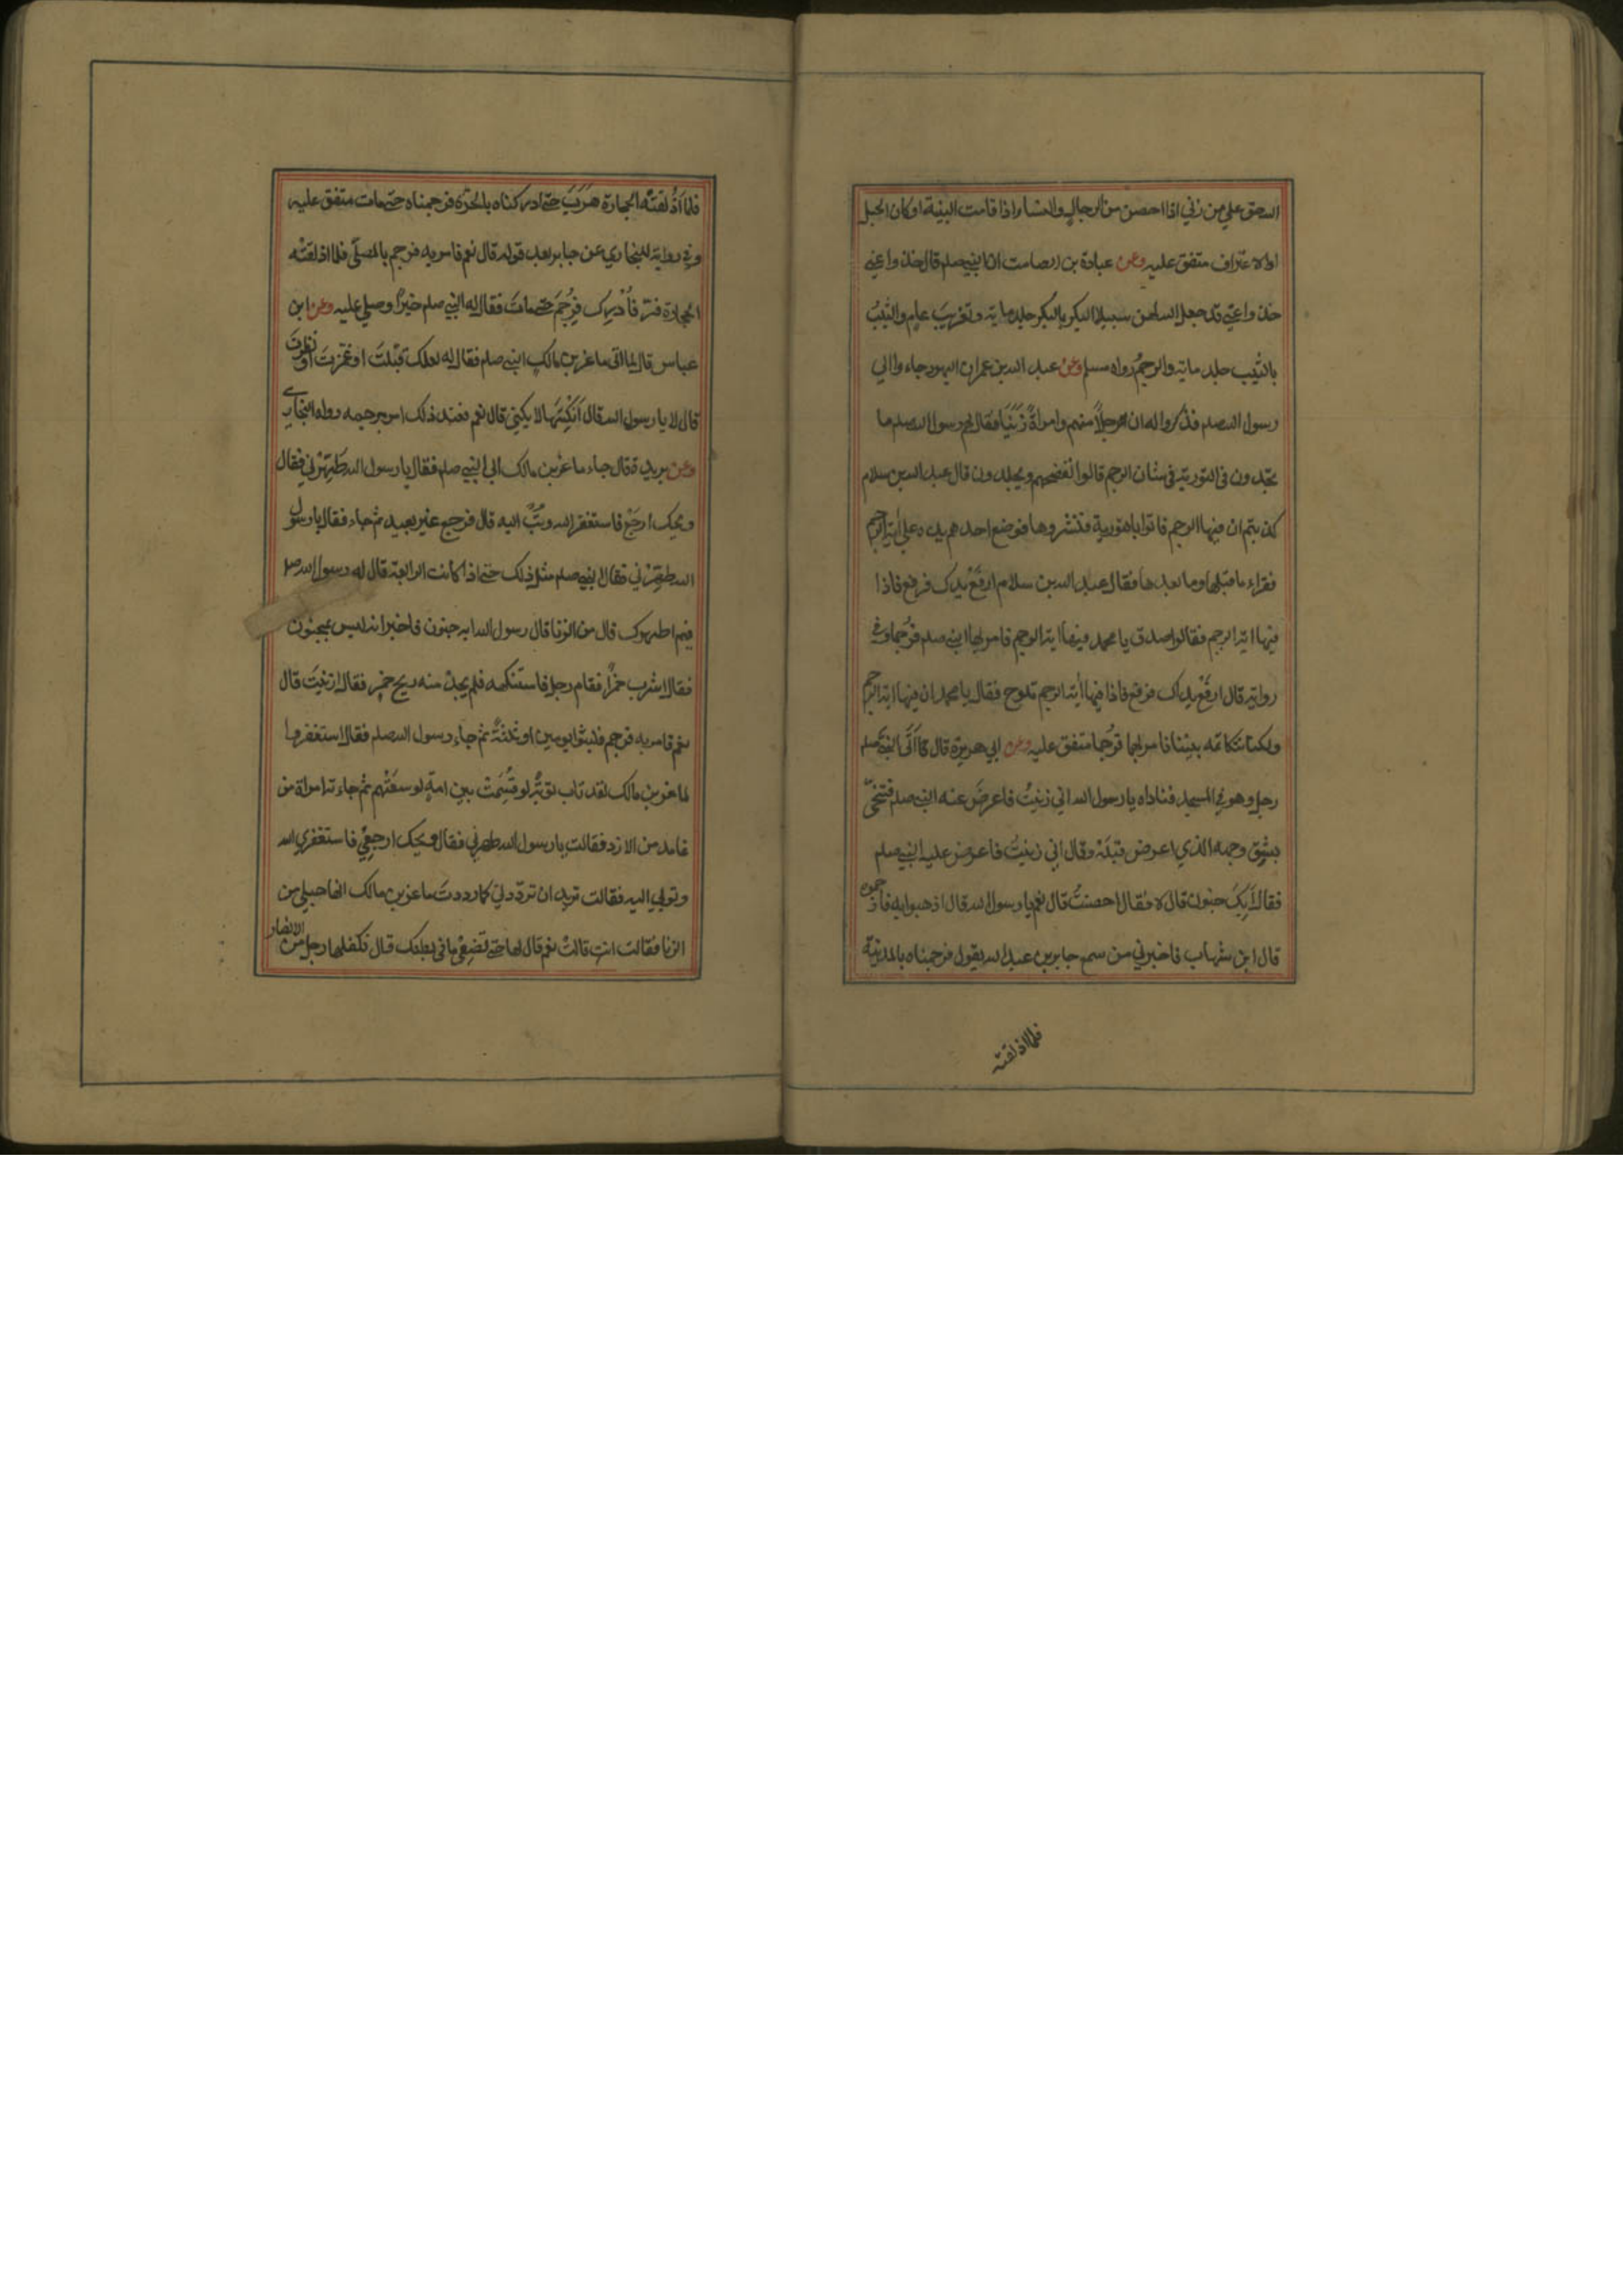 الله حق علي من زني اذا احصن من الرجال والنساء اذا قامت البينة او كان الحبل
او الاعتراف متفق عليه وعن عبادة بن الصامت ان النبي صلم قال خذوا عني
خذوا عني قد جعل الله لهن سبيلا البكر بالبكر جلد ماية وتغريب عام والثيب
بالثيب جلد ماية والرجم رواه مسلم وعن عبد الله بن عمر ان اليهود جاءوا الي
رسول الله صلم فذكروا له ان رجلاً منهم وامراةً زَنَيَا فقال لهم رسول الله صلم ما
تجدون في التورية في شان الرجم قالوا نفضحهم ويجلدون قال عبد الله بن سلام
كذبتم ان فيها الرجم فاتوا بالتورية فنشروها فوضع احدهم يده علي اية الرجم
فقراء ما قبلها وما بعدها فقال عبد الله بن سلام ارفَعْ يدك فرفع فاذا
فيها اية الرجم فقالوا صدق يا محمد فيها اية الرجم فامر بهما النبي صلم فرُجما وفي
رواية قال ارفَعْ يدك فرفع فاذا فيها اية الرجم تلوح فقال يا محمد ان فيها اية الرجم
ولكنا نتكاتمه بيننا فامر بهما فرُجما متفق عليه وعن ابي هريرة قال اَتَي النبيَّ صلم
رجل وهو في المسجد فناداه يا رسول الله اني زنيتُ فاعرضَ عنه النبي صلم فتنحّي
بشِقّ وجهه الذي اعرض قبَلَه وقال اني زنيتُ فاعرض عليه النبي صلم
فقال اَبِكَ جنون قال لا فقال احصنتَ قال نعم يا رسول الله قال اذهبوا به فارجموه
قال ابن شهاب فاخبرني من سمع جابر بن عبد الله يقول فرجمناه بالمدينة
فلما اذلقته
فلما اَذْلَقتْه الحجارة هَرَبَ حتي ادركناه بالحَرّة فرجمناه حتي مات متفق عليه
وفي رواية للبخاري عن جابر بعد قوله قال نعم فامر به فرجم بالمصلّي فلما اذلقَتْه
الحجارة فرّ فاُدْرِك فرُجمَ حتي ماتَ فقال له النبي صلم خيراً وصلي عليه وعن ابن
عباس قال لما اتي ماعز بن مالك النبي صلم فقال له لعلك قبّلتَ او غمزتَ او نظرتَ
قال لا يا رسول الله قال اَنِكْتَها لا يكني قال نعم فعند ذلك امر برجمه رواه البخاري
وعن بريدة قال جاء ماعز بن مالك الي النبي صلم فقال يا رسول الله طَهِّرْني فقال
ويحك ارجِعْ فاستغفر الله وتُبْ اليه قال فرجع غير بعيد ثم جاء فقال يا رسول
الله طهّرْني فقال النبي صلم مثل ذلك حتي اذا كانت الرابعة قال له رسول الله صلم
فيم اطهرك قال من الزنا قال رسول الله ابه جنون فاخبر انه ليس بمجنون
فقال اشرب خمراً فقام رجل فاستنكهه فلم يجدْ منه ريح خمر فقال ازنيتَ قال
نعم فامر به فرجم فلبثوا يومين او ثلثةً ثم جاء رسول الله صلم فقال استغفروا
لماعز بن مالك لقد تاب توبةً لو قُسِمَتْ بين امةٍ لوسعَتْهم ثم جاءته امراة من
غامد من الازد فقالت يا رسول الله طهرني فقال ويحك ارجعِيْ فاستغفري الله
وتوبي اليه فقالت تريد ان تردّدني كما رددتَ ماعز بن مالك انها حبلي من
الزنا فقالت انتِ قالتْ نعم قال لها حتي تضعِيْ ما في بطنك قال فكفلها رجل من الانصار